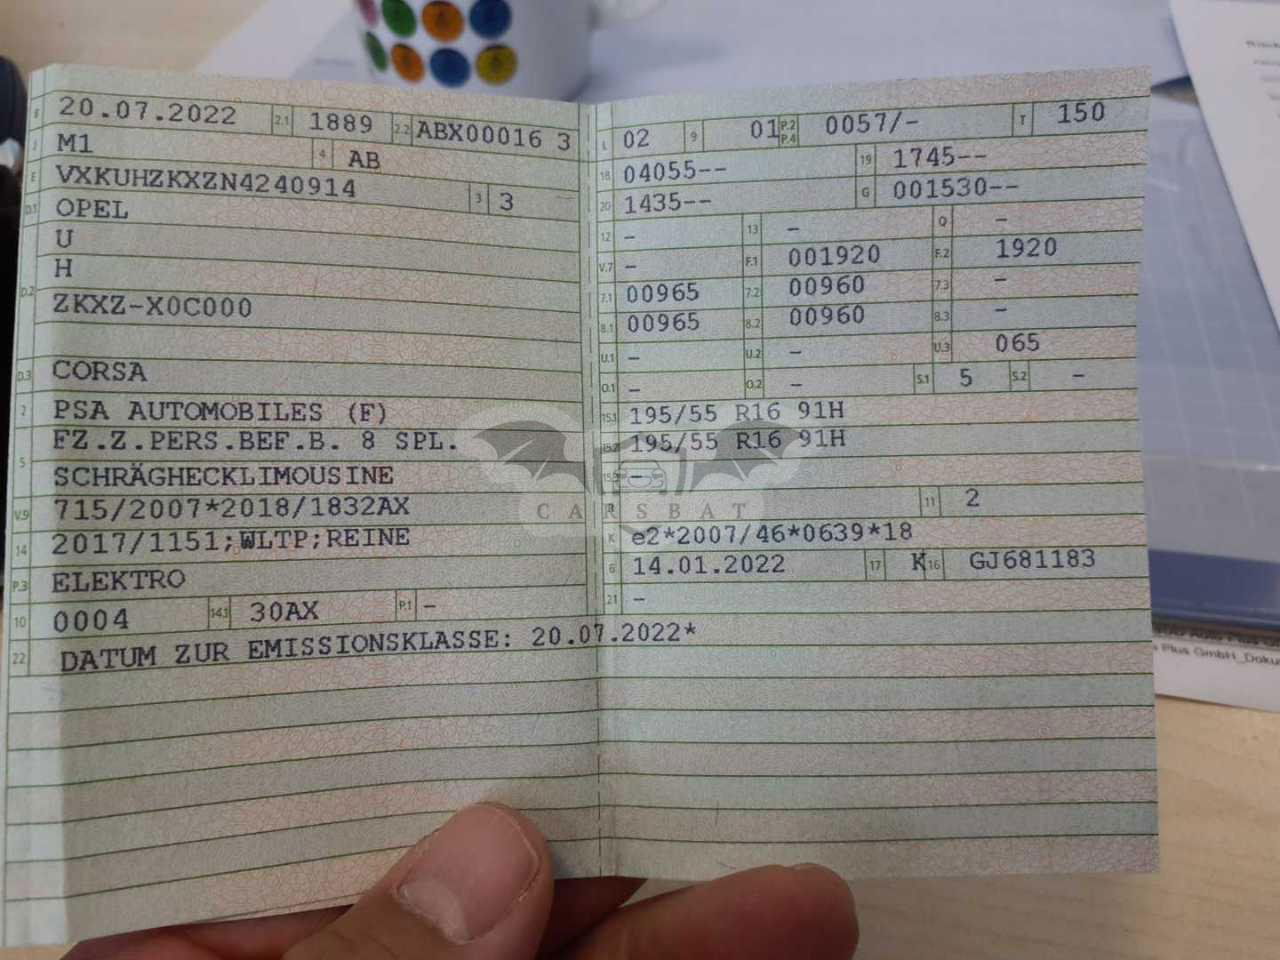 B 20.07.2022 2.1 1889 2.2 ABX00016 3
J M1 4 AB
E VXKUHZKXZN4240914 3 3
D.1 OPEL
U
D.2 H
ZKXZ-X0C000
D.3 CORSA
2 PSA AUTOMOBILES (F)
FZ.Z.PERS.BEF.B. 8 SPL.
5 SCHRÄGHECKLIMOUSINE
V.9 715/2007*2018/1832AX
14 2017/1151;WLTP;REINE
P.3 ELEKTRO
10 0004 14.1 30AX P.1 -
22 DATUM ZUR EMISSIONSKLASSE: 20.07.2022*
L 02 9 01 P.2 P.4 0057/- T 150
18 04055-- 19 1745--
20 1435-- G 001530--
12 - 13 - Q -
V.7 - F.1 001920 F.2 1920
7.1 00965 7.2 00960 7.3 -
8.1 00965 8.2 00960 8.3 -
U.1 - U.2 - U.3 065
O.1 - O.2 - S.1 5 S.2 -
15.1 195/55 R16 91H
15.2 195/55 R16 91H
15.3 -
R 11 2
K e2*2007/46*0639*18
6 14.01.2022 17 K 16 GJ681183
21 -
CARSBAT
Plus GmbH_Doku